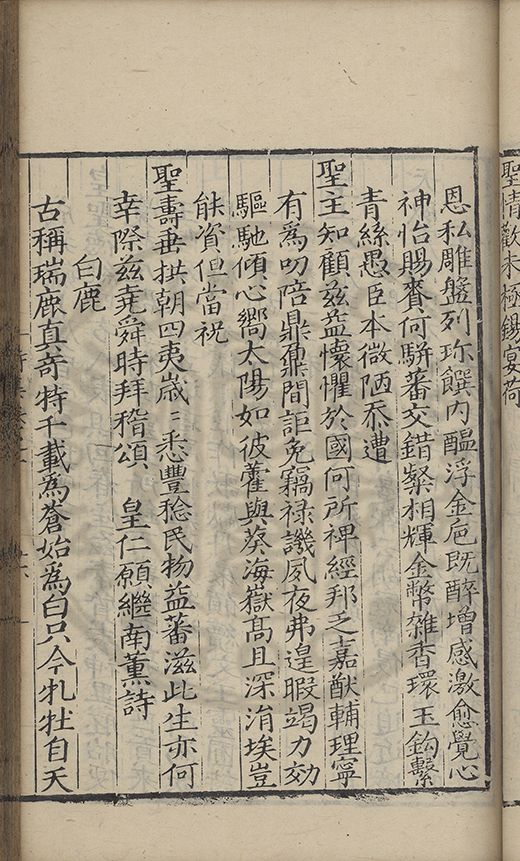 聖情歡未極錫宴荷
恩私雕盤列珎饌内醖浮金巵既醉增感激愈覺心
神怡賜賚何駢蕃交錯粲相輝金幣雜香環玉鈎繫
青絲愚臣本微陋忝遭
聖主知顧兹益懷懼於國何所裨經邦乏嘉猷輔理寜
有爲叨陪鼎鼐間詎免竊禄譏夙夜弗遑暇竭力効
驅馳傾心嚮太陽如彼藿與葵海嶽髙且深涓埃豈
能資但當祝
聖壽垂拱朝四夷歳〻悉豐稔民物益蕃滋此生亦何
幸際兹堯舜時拜稽頌　皇仁願繼南薰詩
白鹿
古稱瑞鹿真竒特千載為蒼始為白只今牝牡自天